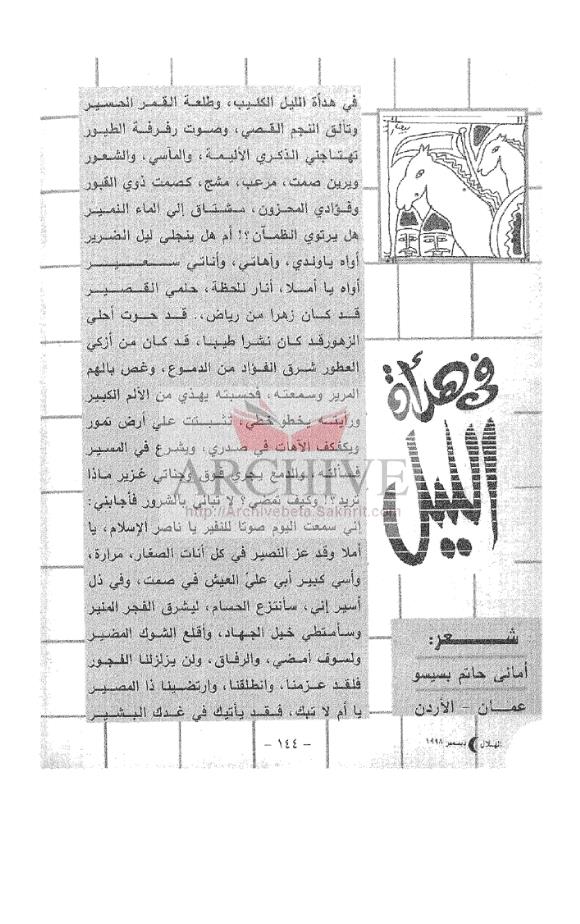 في هدأة
الليل
شــعر:
أمانى حاتم بسيسو
عمـان - الأردن
في هدأة الليل الكئيب، وطلعة القمر الحسير
وتألق النجم القصي، وصوت رفرفة الطيور
تهتاجني الذكري الأليمة، والمآسي، والشعور
ويرين صمت، مرعب، مشج، كصمت ذوي القبور
وفؤادي المحزون، مشتاق إلي الماء النمير
هل يرتوي الظمآن؟! أم هل ينجلي ليل الضرير
أواه ياولدي، وأهاتي، وأناتي سـعـيـر
أواه يا أملا، أنار للحظة، حلمي القـصـيـر
قد كان زهرا من رياض،. قد حوت أحلي
الزهورقد كان نشرا طيبا، قد كان من أزكي
العطور شرق الفؤاد من الدموع، وغص بالهم
المرير وسمعته، فحسبته يهذي من الألم الكبير
ورأيته يخطو تثبتت علي أرض تمور
ويكفكف الآهات في صدري، ويشرع في المسير
فسألته والدمع يجري فوق وجناتي غزير ماذا
تريد؟! وكيف تمضي؟ لا تبالي بالشرور فأجابني:
إني سمعت اليوم صوتا للنفير يا ناصر الإسلام، يا
أملا وقد عز النصير في كل أنات الصغار، مرارة،
وأسي كبير أبي عليّ العيش في صمت، وفي ذل
أسير إني، سأنتزع الحسام، ليشرق الفجر المنير
وسأمتطي خيل الجهاد، وأقلع الشوك المضير
ولسوف أمضي، والرفاق، ولن يزلزلنا الفجور
فلقد عزمنا، وانطلقنا، وارتضينا ذا المصير
يا أم لا تبك، فـقـد يأتيك في غدك البشـيـر
ARCHIVE
http://Archivebeta.Sakhrit.com
- ١٤٤ -
الهلال ديسمبر ١٩٩٨